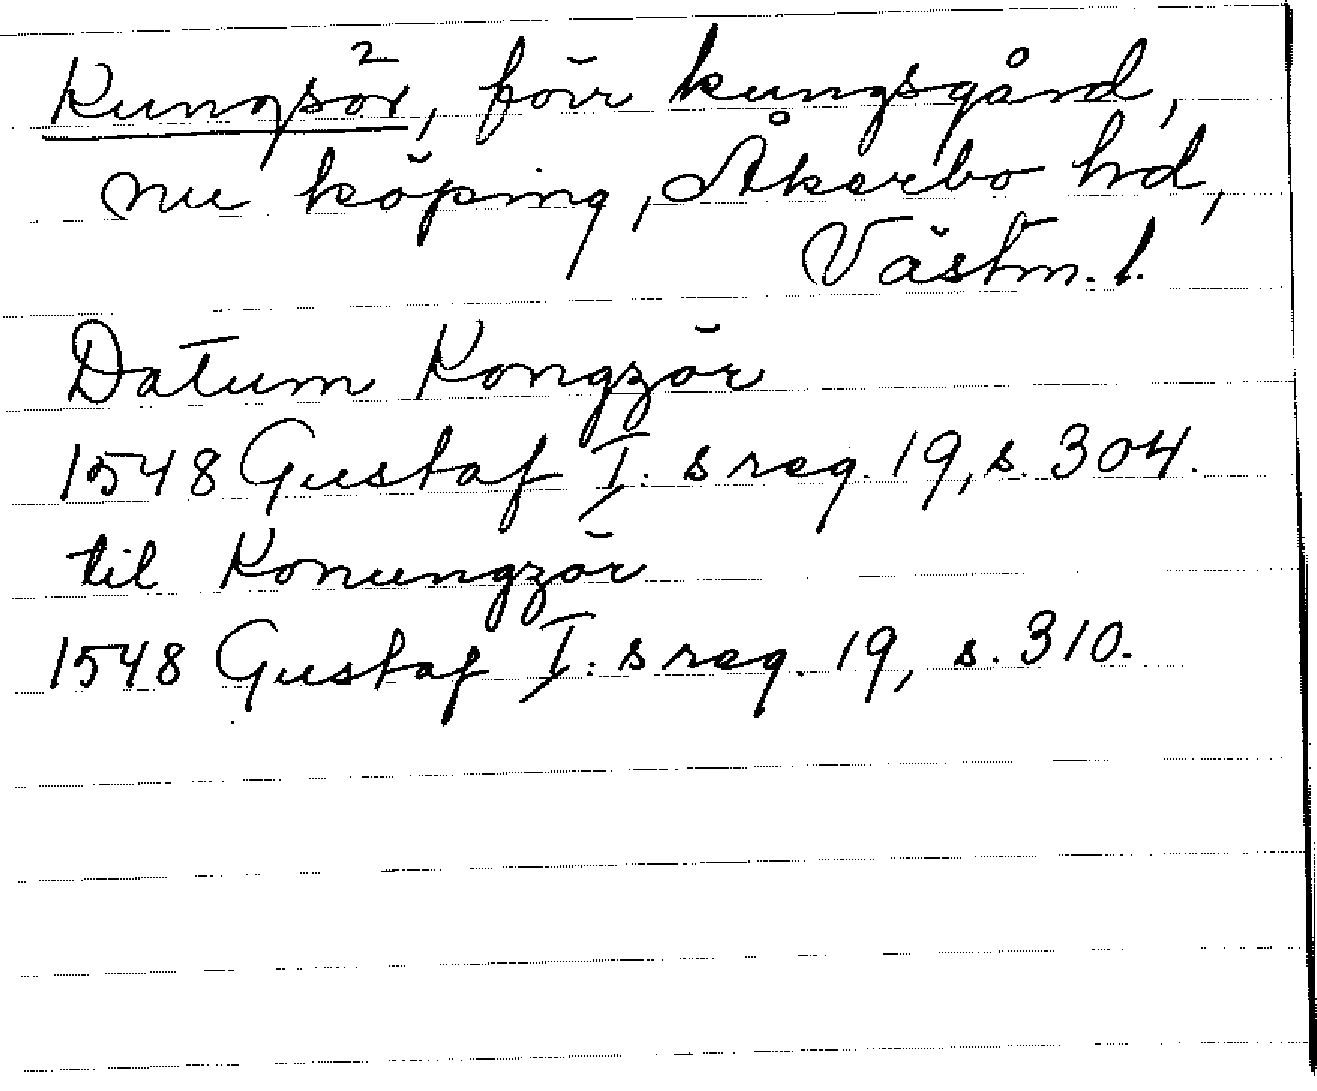 Kungsör, förr kungsgård,
nu köping, Åkerbo hd,
Västm. l.
Datum Kongzör
1548 Gustaf I:s reg. 19, s. 304.
til Konungzör
1548 Gustaf I:s reg. 19, s. 310.